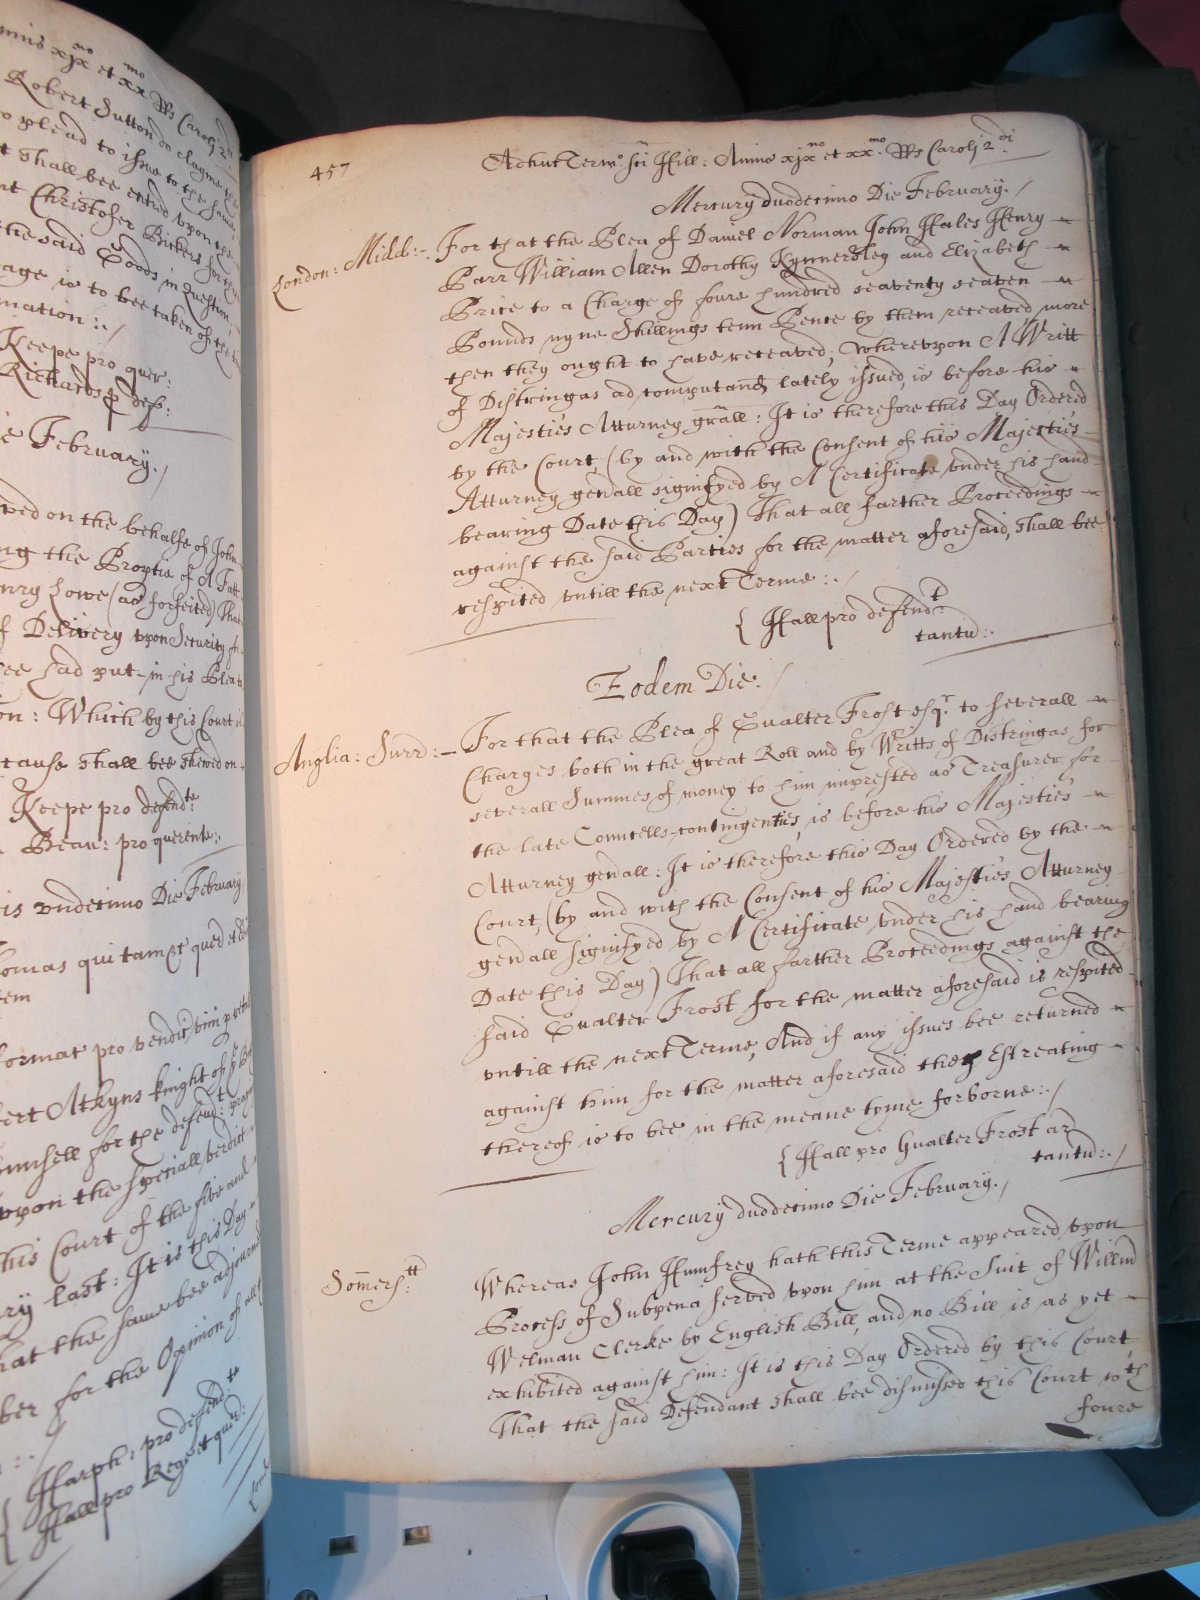 mnis xjx mo et xx mo Rs Caroli 2 di
Robert Sutton do clayme the
to plead to issue to the same
t shall bee entred upon the
nt Christofer Bickers for
the said Goods in Question,
age is to bee taken of the
mation :./
Keepe pro quer:
Richards p def:
e February./
ved on the behalfe of John
ng the Proptie of A
nry Lowe (as forfeited) That
f Delivery vpon Security
ee had put in his Plea
on: Which by this Court
cause shall bee shewed on
Keepe pro defend te:
Bean: pro querente:.
is vndecimo Die February
omas qui tam &c qued et
tem
format pro vendit vini
ert Atkyns knight of ye
himselfe for the defend t:
vpon the speciall verdict
this Court of the five and
ry last: It is this Day
hat the same bee adjourned
ber for the Opinion of all
:./
{ Harph: pro defend te
Hall pro Rege et quer:
457
Adhuc Term o: Sci Hill: Anno xjx no et xx mo: Rs Caroli 2 di
Mercury duodecimo Die February./
London: Midd:-. For that the Plea of Daniel Norman John Hales Henry
Parr William Allen Dorothy Kynnersley and Elizabeth
Price to a Charge of foure hundred seaventy seaven
Pounds nyne Shillings tenn Pence by them receaved more
then they ought to have receaved; wherevpon A Writt
of Distringas ad computand lately issued, is before his
Majesties Atturney grall: It is therefore this Day Ordered
by the Court, (by and with the Consent of his Majesties
Atturney gen'all signifyed by A Certificate vnder his hand
bearing Date this Day) That all farther Proceedings
against the said Parties for the matter aforesaid, shall bee
respited vntill the next Terme :./
{ Hall pro defend t:
tantu:.
Eodem Die:/
Anglia: Surr:- For that the Plea of Gualter Frost esq r: to severall
Charges both in the great Roll and by Writts of Distringas for
severall Summes of money to him imprested as Treasurer for
the late Councells-contingenties, is before his Majesties
Atturney gen'all: It is therefore this Day Ordered by the
Court, (by and with the Consent of his Majesties Atturney
gen'all signifyed by A Certificate vnder his hand bearing
Date this Day) That all farther Proceedings against the
said Gualter Frost for the matter aforesaid is respited
vntill the next Terme, And if any issues bee returned
against him for the matter aforesaid the Estreating
thereof is to bee in the meane tyme forborne:./
{ Hall pro Gualter Frost ar
tantu:./
Mercury duodecimo Die February./
Somers tt: Whereas John Humfrey hath this Terme appeared vpon
Process of Subpena served vpon him at the Suit of Willm
Welman Clerke by English Bill, and no Bill is as yet
exhibited against him: It is this Day Ordered by this Court,
That the said Defendant shall bee dismissed this Court w th
foure